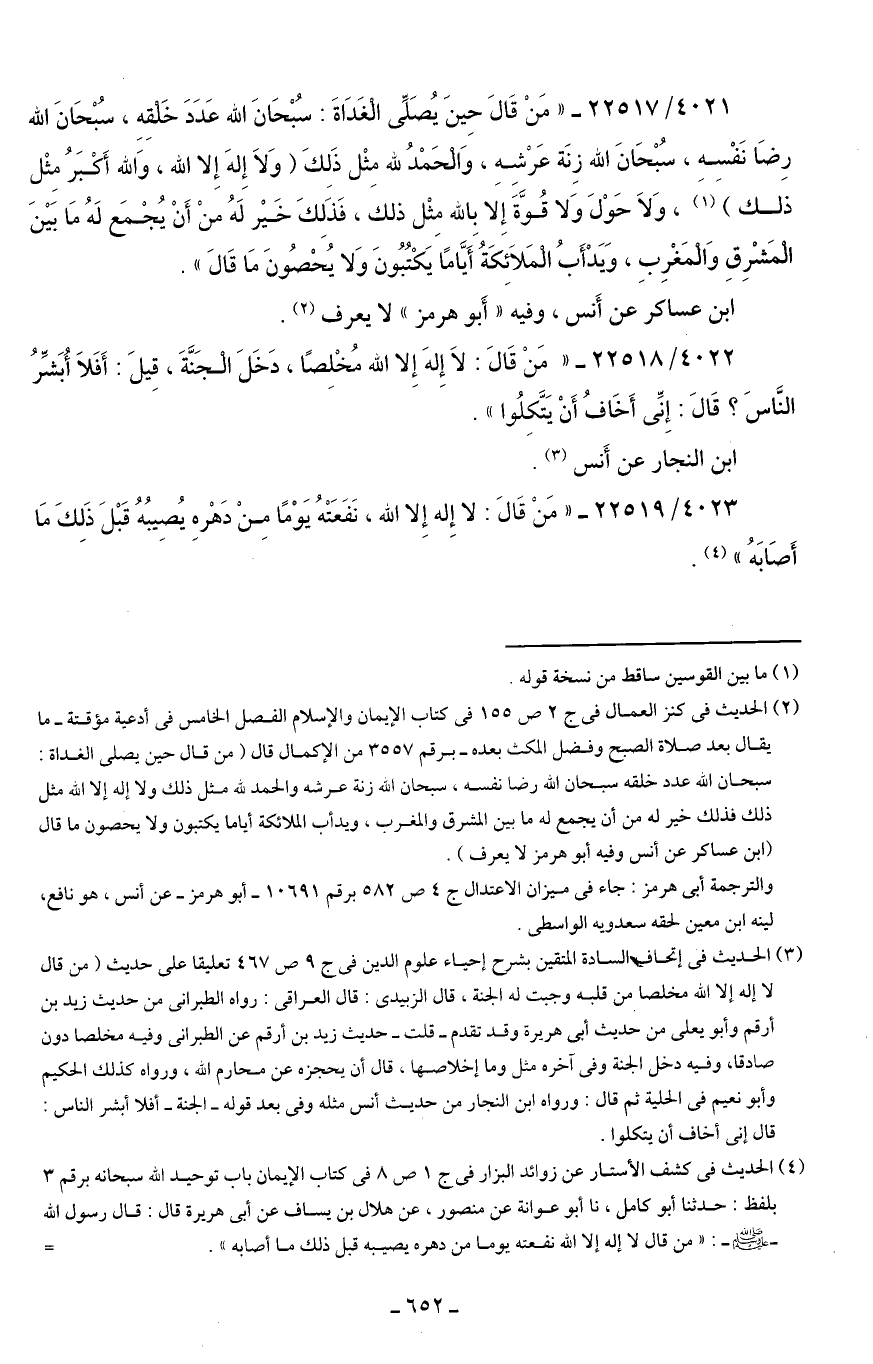 ٢٢٥١٧/٤٠٢١ ـ « مَنْ قَالَ حِينَ يُصَلِّى الْغَدَاةَ : سُبْحَانَ الله عَدَدَ خَلْقِه ، سُبْحَانَ الله
رِضَا نَفْسِـه ، سُبْحَانَ الله زِنَة عَرْشِـه ، وَالْحَمْدُ لله مثْل ذَلِكَ ( وَلاَ إِلهَ إلا الله ، وَالله أَكْبَرُ مثْل
ذلِـك ) (١) ، وَلاَ حَوْلَ وَلا قُوَّةَ إلا بِالله مثْل ذلك ، فَذَلِكَ خَيْر لَهُ مِنْ أَنْ يُجْمَع لَهُ مَا بَيْنَ
الْمَشْرِقِ وَالْمَغْرِبِ ، وَيَدْأَبُ الْمَلاَئِكَةُ أَيَّامًا يَكْتُبُونَ وَلا يُحْصُونَ مَا قَالَ » .
ابن عساكر عن أَنس ، وفيه « أَبو هرمز » لا يعرف (٢) .
٢٢٥١٨/٤٠٢٢ ـ « مَنْ قَالَ : لاَ إِلهَ إِلا الله مُخْلِصًا ، دَخَلَ الْـجَنَّةَ ، قِيلَ : أَفَلاَ أُبَشِّرُ
النَّاسَ ؟ قَالَ : إِنِّى أَخَافُ أَنْ يَتَّكِلُوا » .
ابن النجار عن أَنس (٣) .
٢٢٥١٩/٤٠٢٣ ـ « مَنْ قَالَ : لا إِله إِلا الله ، نَفَعَتْهُ يَوْمًا مِـنْ دَهْرِهِ يُصِيبُهُ قَبْلَ ذَلِكَ مَا
أَصَابَهُ » (٤) .
(١) ما بين القوسين ساقط من نسخة قوله .
(٢) الحديث فى كنز العمـال فى ج ٢ ص ١٥٥ فى كتاب الإيمان والإسلام الفـصل الخامس فى أدعية مؤقـتة ـ ما
يقـال بعد صـلاة الصبح وفـضل المكث بعده ـ بـرقم ٣٥٥٧ من الإكمـال قال ( من قـال حين يصلى الغـداة :
سبـحـان الله عدد خلقه سبـحـان الله رضا نفسـه ، سبحـان الله زنة عـرشه والحمد لله مـثل ذلك ولا إله إلا الله مثل
ذلك فذلك خير له من أن يجمع له ما بين المشرق والمغـرب ، ويدأب الملائكة أياما يكتبون ولا يحصون ما قال
(ابن عساكر عن أنس وفيه أبو هرمز لا يعرف ) .
والترجمة أبى هرمز : جاء فى مـيزان الاعتدال ج ٤ ص ٥٨٢ برقم ١٠٦٩١ ـ أبو هرمز ـ عن أنس ، هو نافع،
لينه ابن معين لحقه سعدويه الواسطى .
(٣) الحـديث فى إتحـاف السـادة المتقين بشرح إحيـاء علوم الدين فى ج ٩ ص ٤٦٧ تعليقا على حديث ( من قال
لا إله إلا الله مخلصا من قلبـه وجبت له الجنة ، قال الزبيدى : قال العـراقى : رواه الطبرانى من حديث زيد بن
أرقم وأبو يعلى من حديث أبى هريرة وقـد تقدم ـ قلت ـ حديث زيد بن أرقم عن الطبرانى وفيـه مخلصا دون
صادقا، وفـيه دخل الجنة وفى آخره مثل وما إخلاصـها ، قال أن يحجزه عن مـحارم الله ، ورواه كذلك الحكيم
وأبو نعيم فى الحلية ثم قال : ورواه ابن النجار من حديـث أنس مثله وفى بعد قوله ـ الجنة ـ أفلا أبشر الناس :
قال إنى أخاف أن يتكلوا .
(٤) الحديث فى كشف الأستـار عن زوائد البزار فى ج ١ ص ٨ فى كتاب الإيمان باب توحيـد الله سبحانه برقم ٣
بلفظ : حـدثنا أبو كامل ، نا أبو عـوانة عن منصور ، عن هلال بن يسـاف عن أبى هريرة قال : قـال رسول الله
ـ ﷺ ـ : « من قال لا إله إلا الله نفـعته يومـا من دهره يصيبـه قبل ذلك مـا أصابه » . =
ـ ٦٥٢ ـ